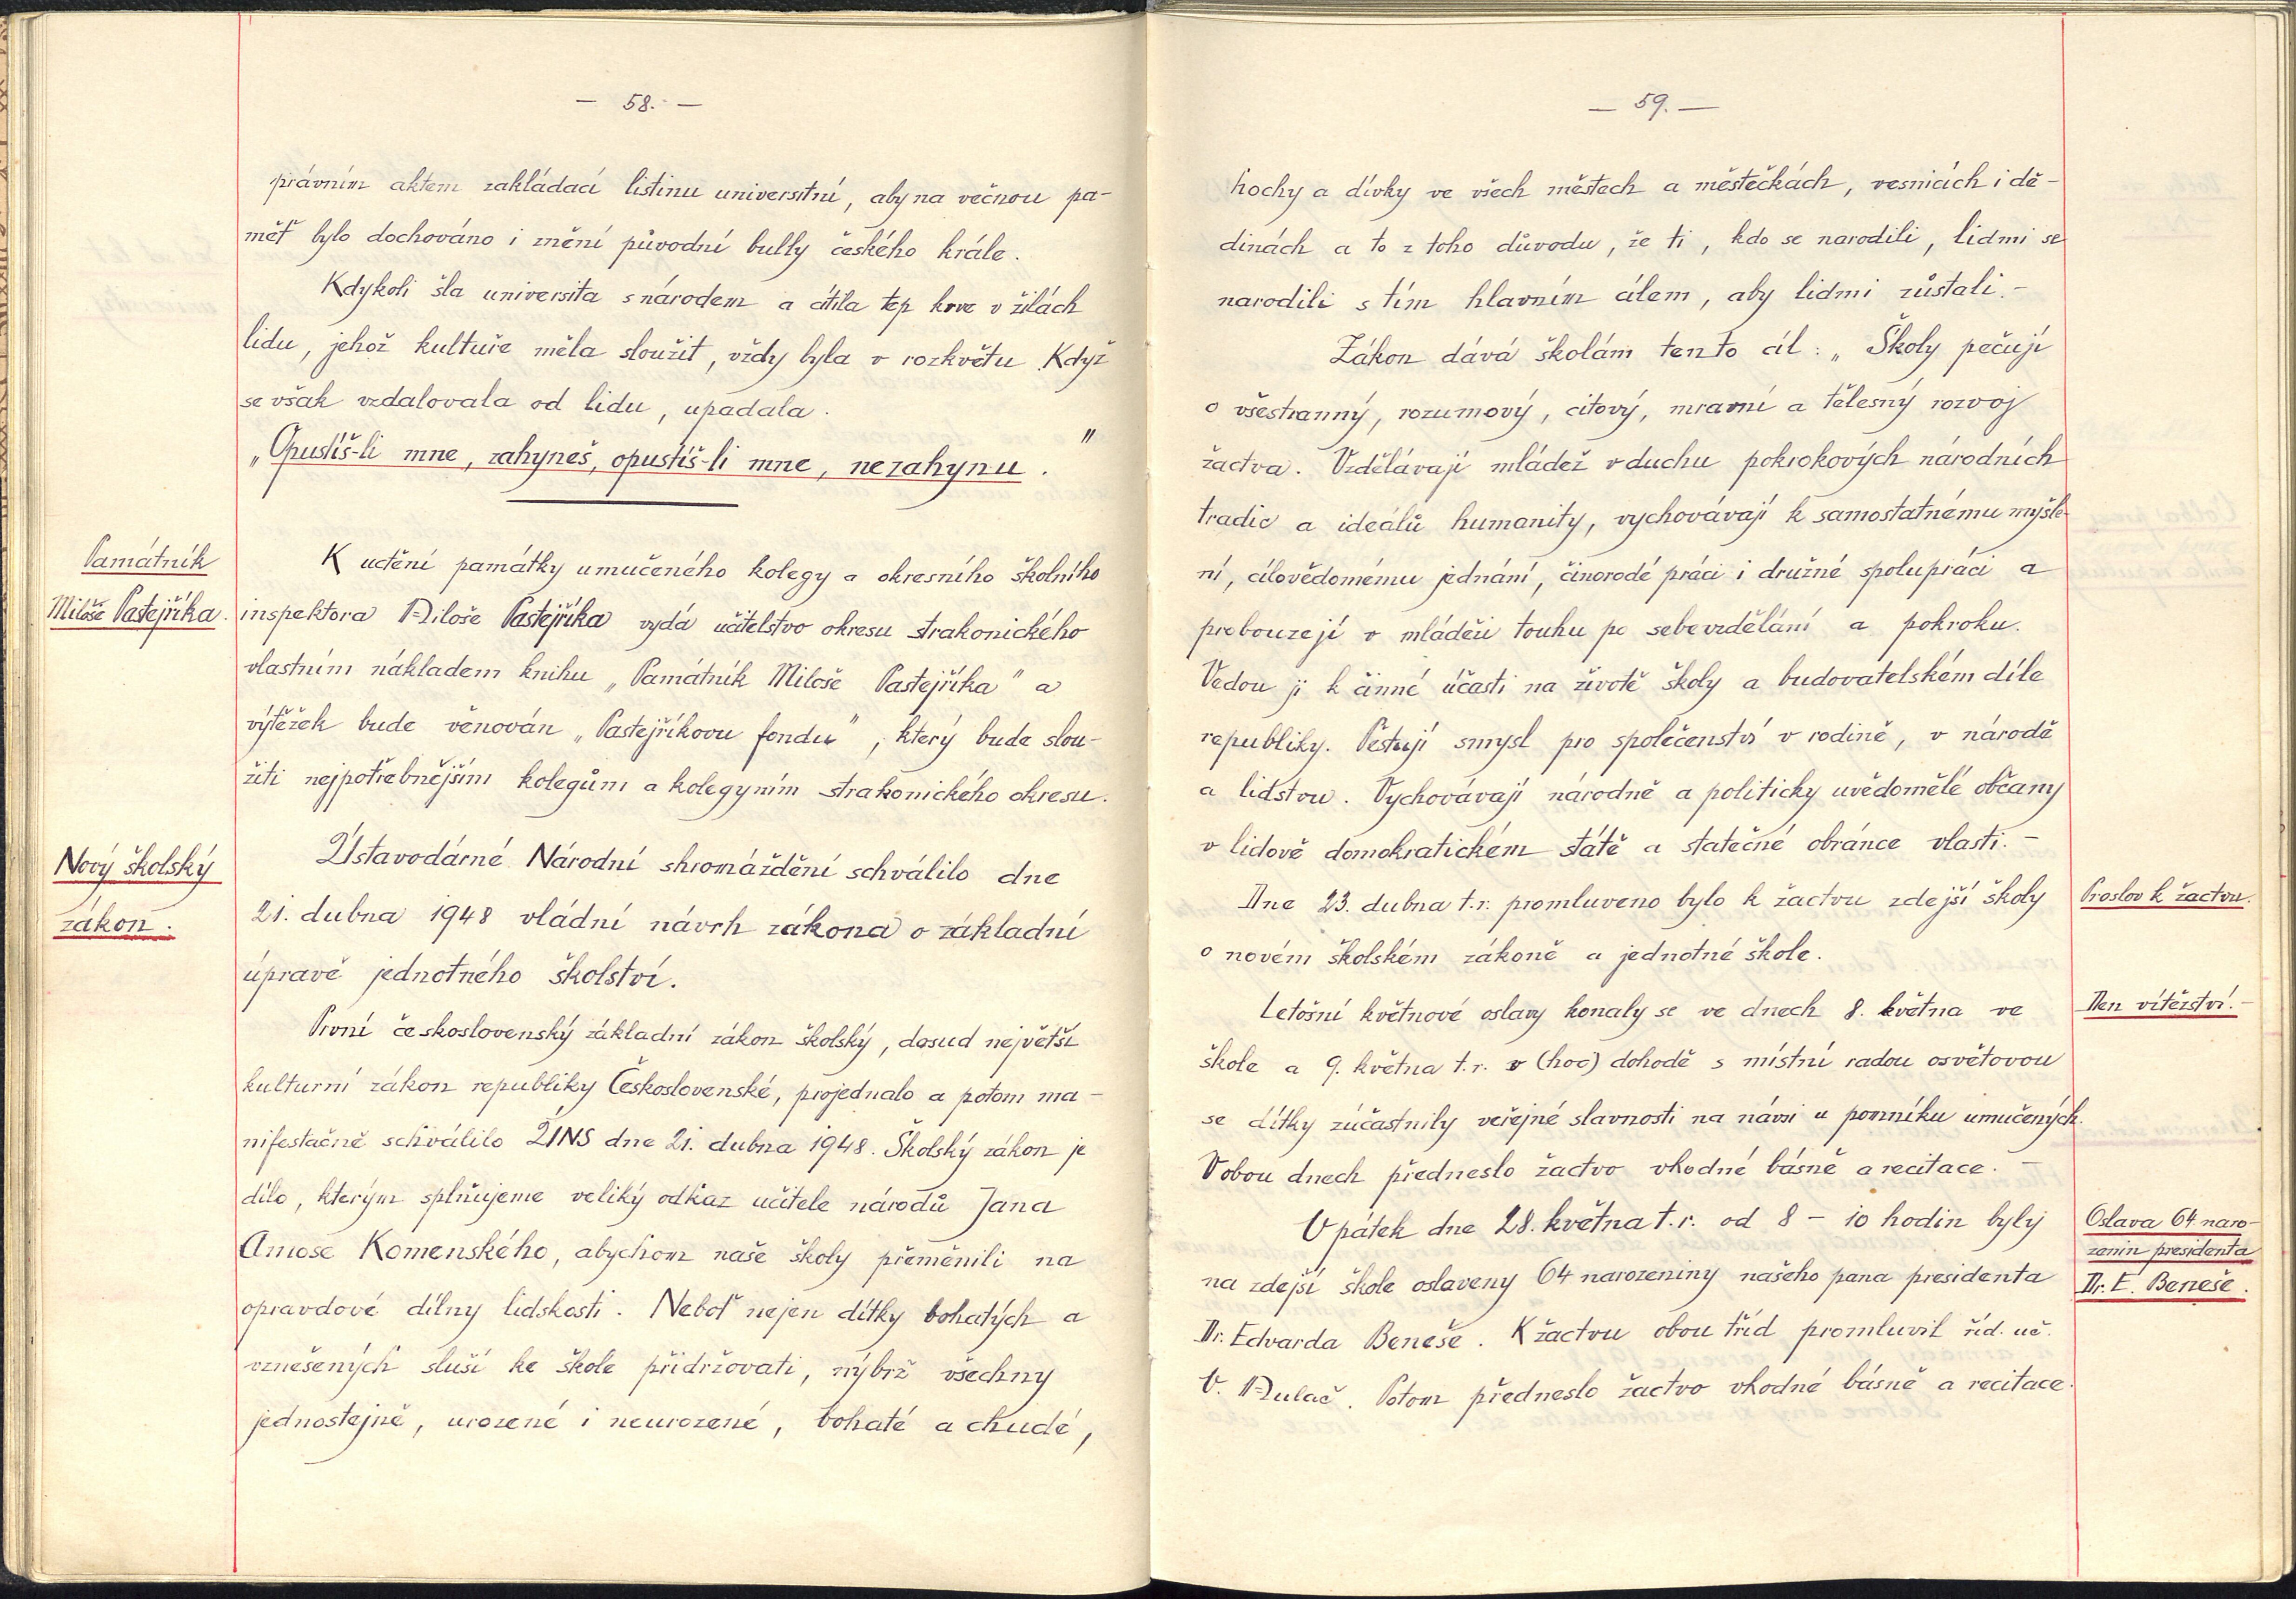 — 58. —
právním aktem zakládací listinu universitní, aby na večnou pa-
měť bylo dochováno i znění původní bully českého krále.
Kdykoli šla universita s národem a cítila tep krve v žilách
lidu, jehož kultuře měla sloužit, vždy byla v rozkvětu. Když
se však vzdalovala od lidu, upadala.
„Opustíš-li mne, zahyneš, opustíš-li mne, nezahynu."
Památník
Miloše Pastejříka.
K uctění památky umučeného kolegy a okresního školního
inspektora Miloše Pastejříka vydá učitelstvo okresu strakonického
vlastním nákladem knihu „Památník Miloše Pastejříka" a
výtěžek bude věnován „Pastejříkovu fondu", který bude slou-
žiti nejpotřebnějším kolegům a kolegyním strakonického okresu.
Nový školský
zákon.
Ústavodárné Národní shromáždění schválilo dne
21. dubna 1948 vládní návrh zákona o základní
úpravě jednotného školství.
První československý základní zákon školský, dosud největší
kulturní zákon republiky Československé, projednalo a potom ma-
nifestačně schválilo ÚNS dne 21. dubna 1948. Školský zákon je
dílo, kterým splňujeme veliký odkaz učitele národů Jana
Amose Komenského, abychom naše školy přeměnili na
opravdové dílny lidskosti. Neboť nejen dítky bohatých a
vznešených sluší ke škole přidržovati, nýbrž všechny
jednostejně, urozené i neurozené, bohaté a chudé,
— 59. —
hochy a dívky ve všech městech a městečkách, vesnicích i dě-
dinách a to z toho důvodu, že ti, kdo se narodili, lidmi se
narodili s tím hlavním cílem, aby lidmi zůstali.-
Zákon dává školám tento cíl: „Školy pečují
o všestranný, rozumový, citový, mravní a tělesný rozvoj
žactva. Vzdělávají mládež v duchu pokrokových národních
tradic a ideálů humanity, vychovávají k samostatnému myšle-
ní, cílevědomému jednání, činorodé práci i družné spolupráci a
probouzejí v mládeži touhu po sebevzdělání a pokroku.
Vedou ji k činné účasti na životě školy a budovatelském díle
republiky. Pěstují smysl pro společenství v rodině, v národě
a lidstvu. Vychovávají národně a politicky uvědomělé občany
v lidově domokratickém státě a statečné obránce vlasti.-
Dne 23. dubna t.r. promluveno bylo k žactvu zdejší školy
Proslov k žactvu.
o novém školském zákoně a jednotné škole.
Letošní květnové oslavy konaly se ve dnech 8. května ve
Den vítězství.-
škole a 9. května t.r. v (hoc) dohodě s místní radou osvětovou
se dítky zúčastnily veřejné slavnosti na návsi u pomníku umučených.
V obou dnech předneslo žactvo vhodné básně a recitace. -
V pátek dne 28. května t.r. od 8 - 10 hodin byly
Oslava 64 naro-
zenin presidenta
Dr. E. Beneše.
na zdejší škole oslaveny 64 narozeniny našeho pana presidenta
Dr. Edvarda Beneše. K žactvu obou tříd promluvil říd. uč.
V. Mulač. Potom předneslo žactvo vhodné básně a recitace.